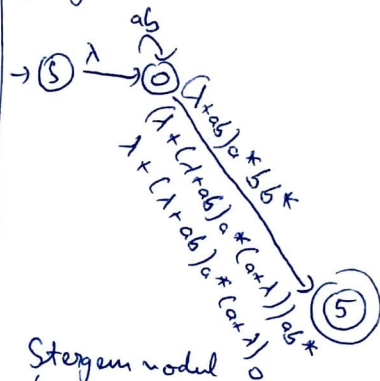 ab
→ S λ 0
(λ+ab)a*bb*
(λ+(λ+ab)a*(a+λ))ab*
λ+(λ+ab)a*(a+λ)
5
Stergem nodul 0